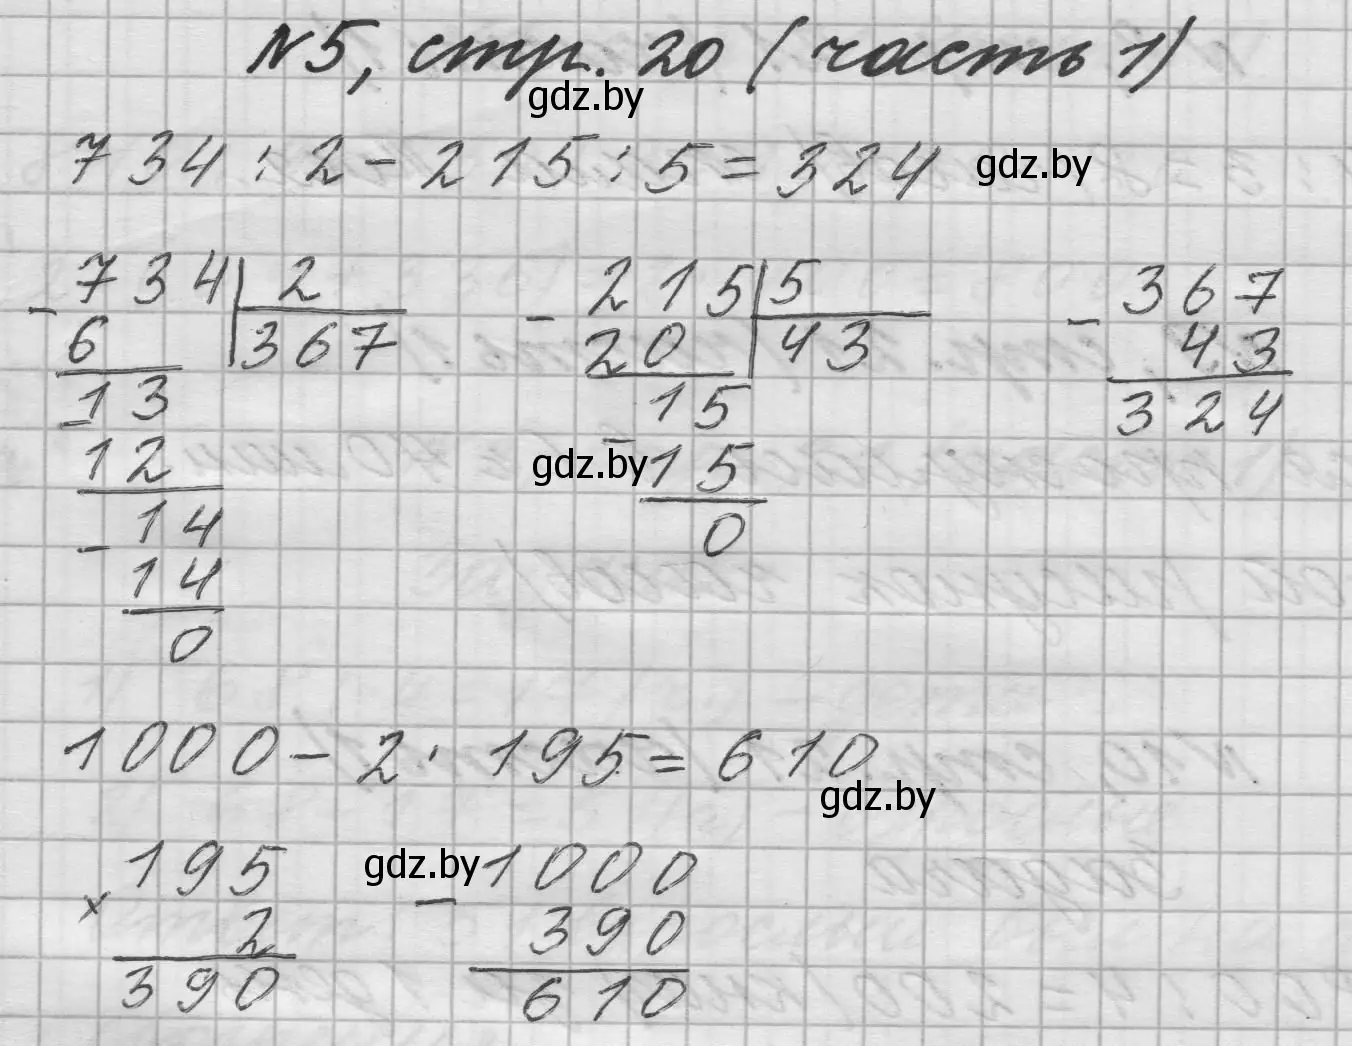 N5, стр. 20 (часть 1)
gdz.by
734 : 2 - 215 : 5 = 324 gdz.by
734 2 215 5 367
- 6 367 - 20 43 - 43
- 13 15 324
12 gdz.by - 15
- 14 0
14
0
1000 - 2 · 195 = 610
gdz.by
195 gdz.by 1000
× 2 - 390
390 610